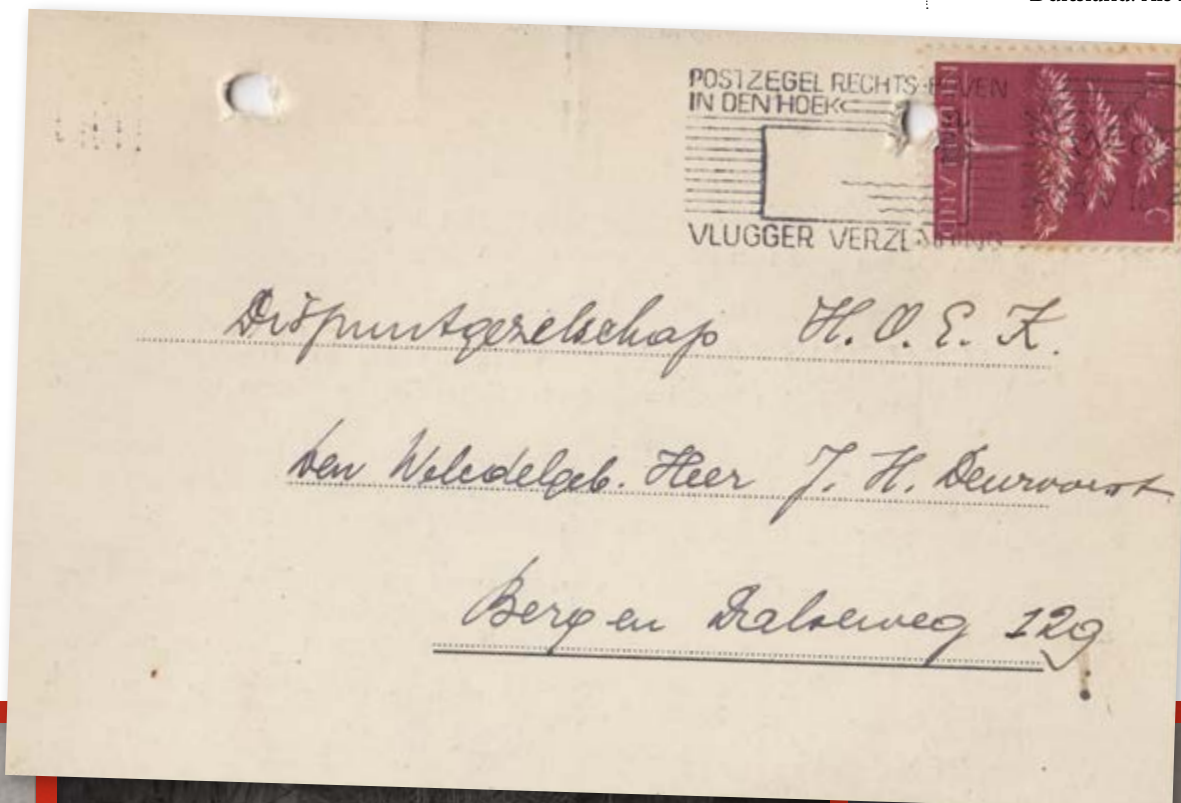 POSTZEGEL RECHTS BOVEN
IN DEN HOEK
VLUGGER VERZENDING
NEDERLAND
C
Dispuutgezelschap H. O. E. K.
den Weledelgeb. Heer J. H. Deurvorst
Berg en Dalseweg 129